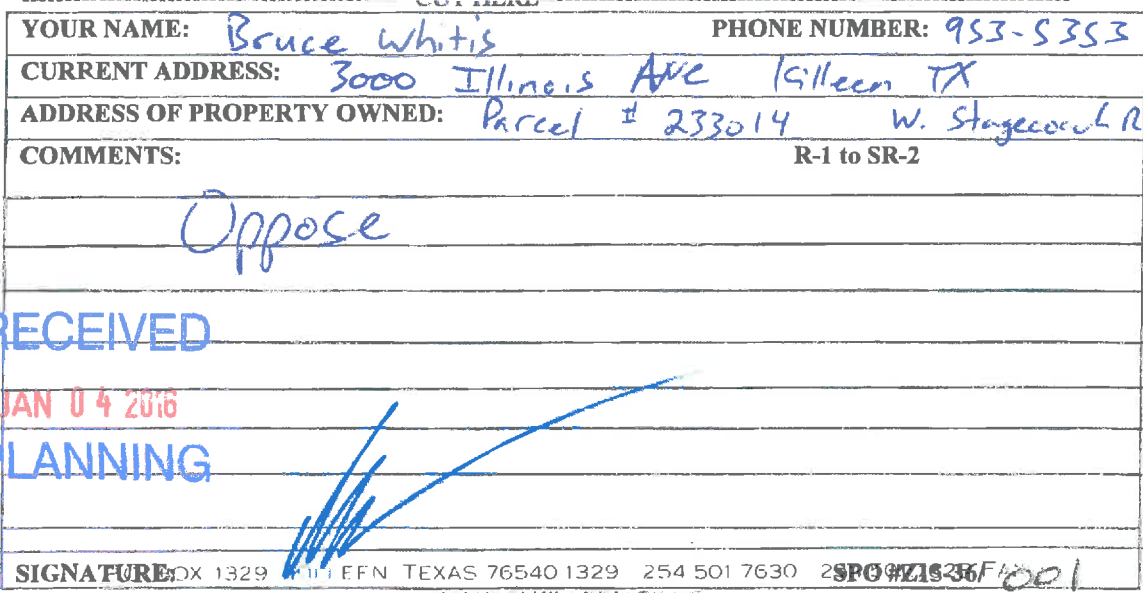 CUT HERE
YOUR NAME: Bruce Whitis PHONE NUMBER: 953-5353
CURRENT ADDRESS: 3000 Illinois Ave Killeen TX
ADDRESS OF PROPERTY OWNED: Parcel # 233014 W. Stagecoach R
COMMENTS: R-1 to SR-2
Oppose
RECEIVED
JAN 04 2016
LANNING
SIGNATURE: OX 1329 EEN TEXAS 76540 1329 254 501 7630 SPO #Z15-36/ 001